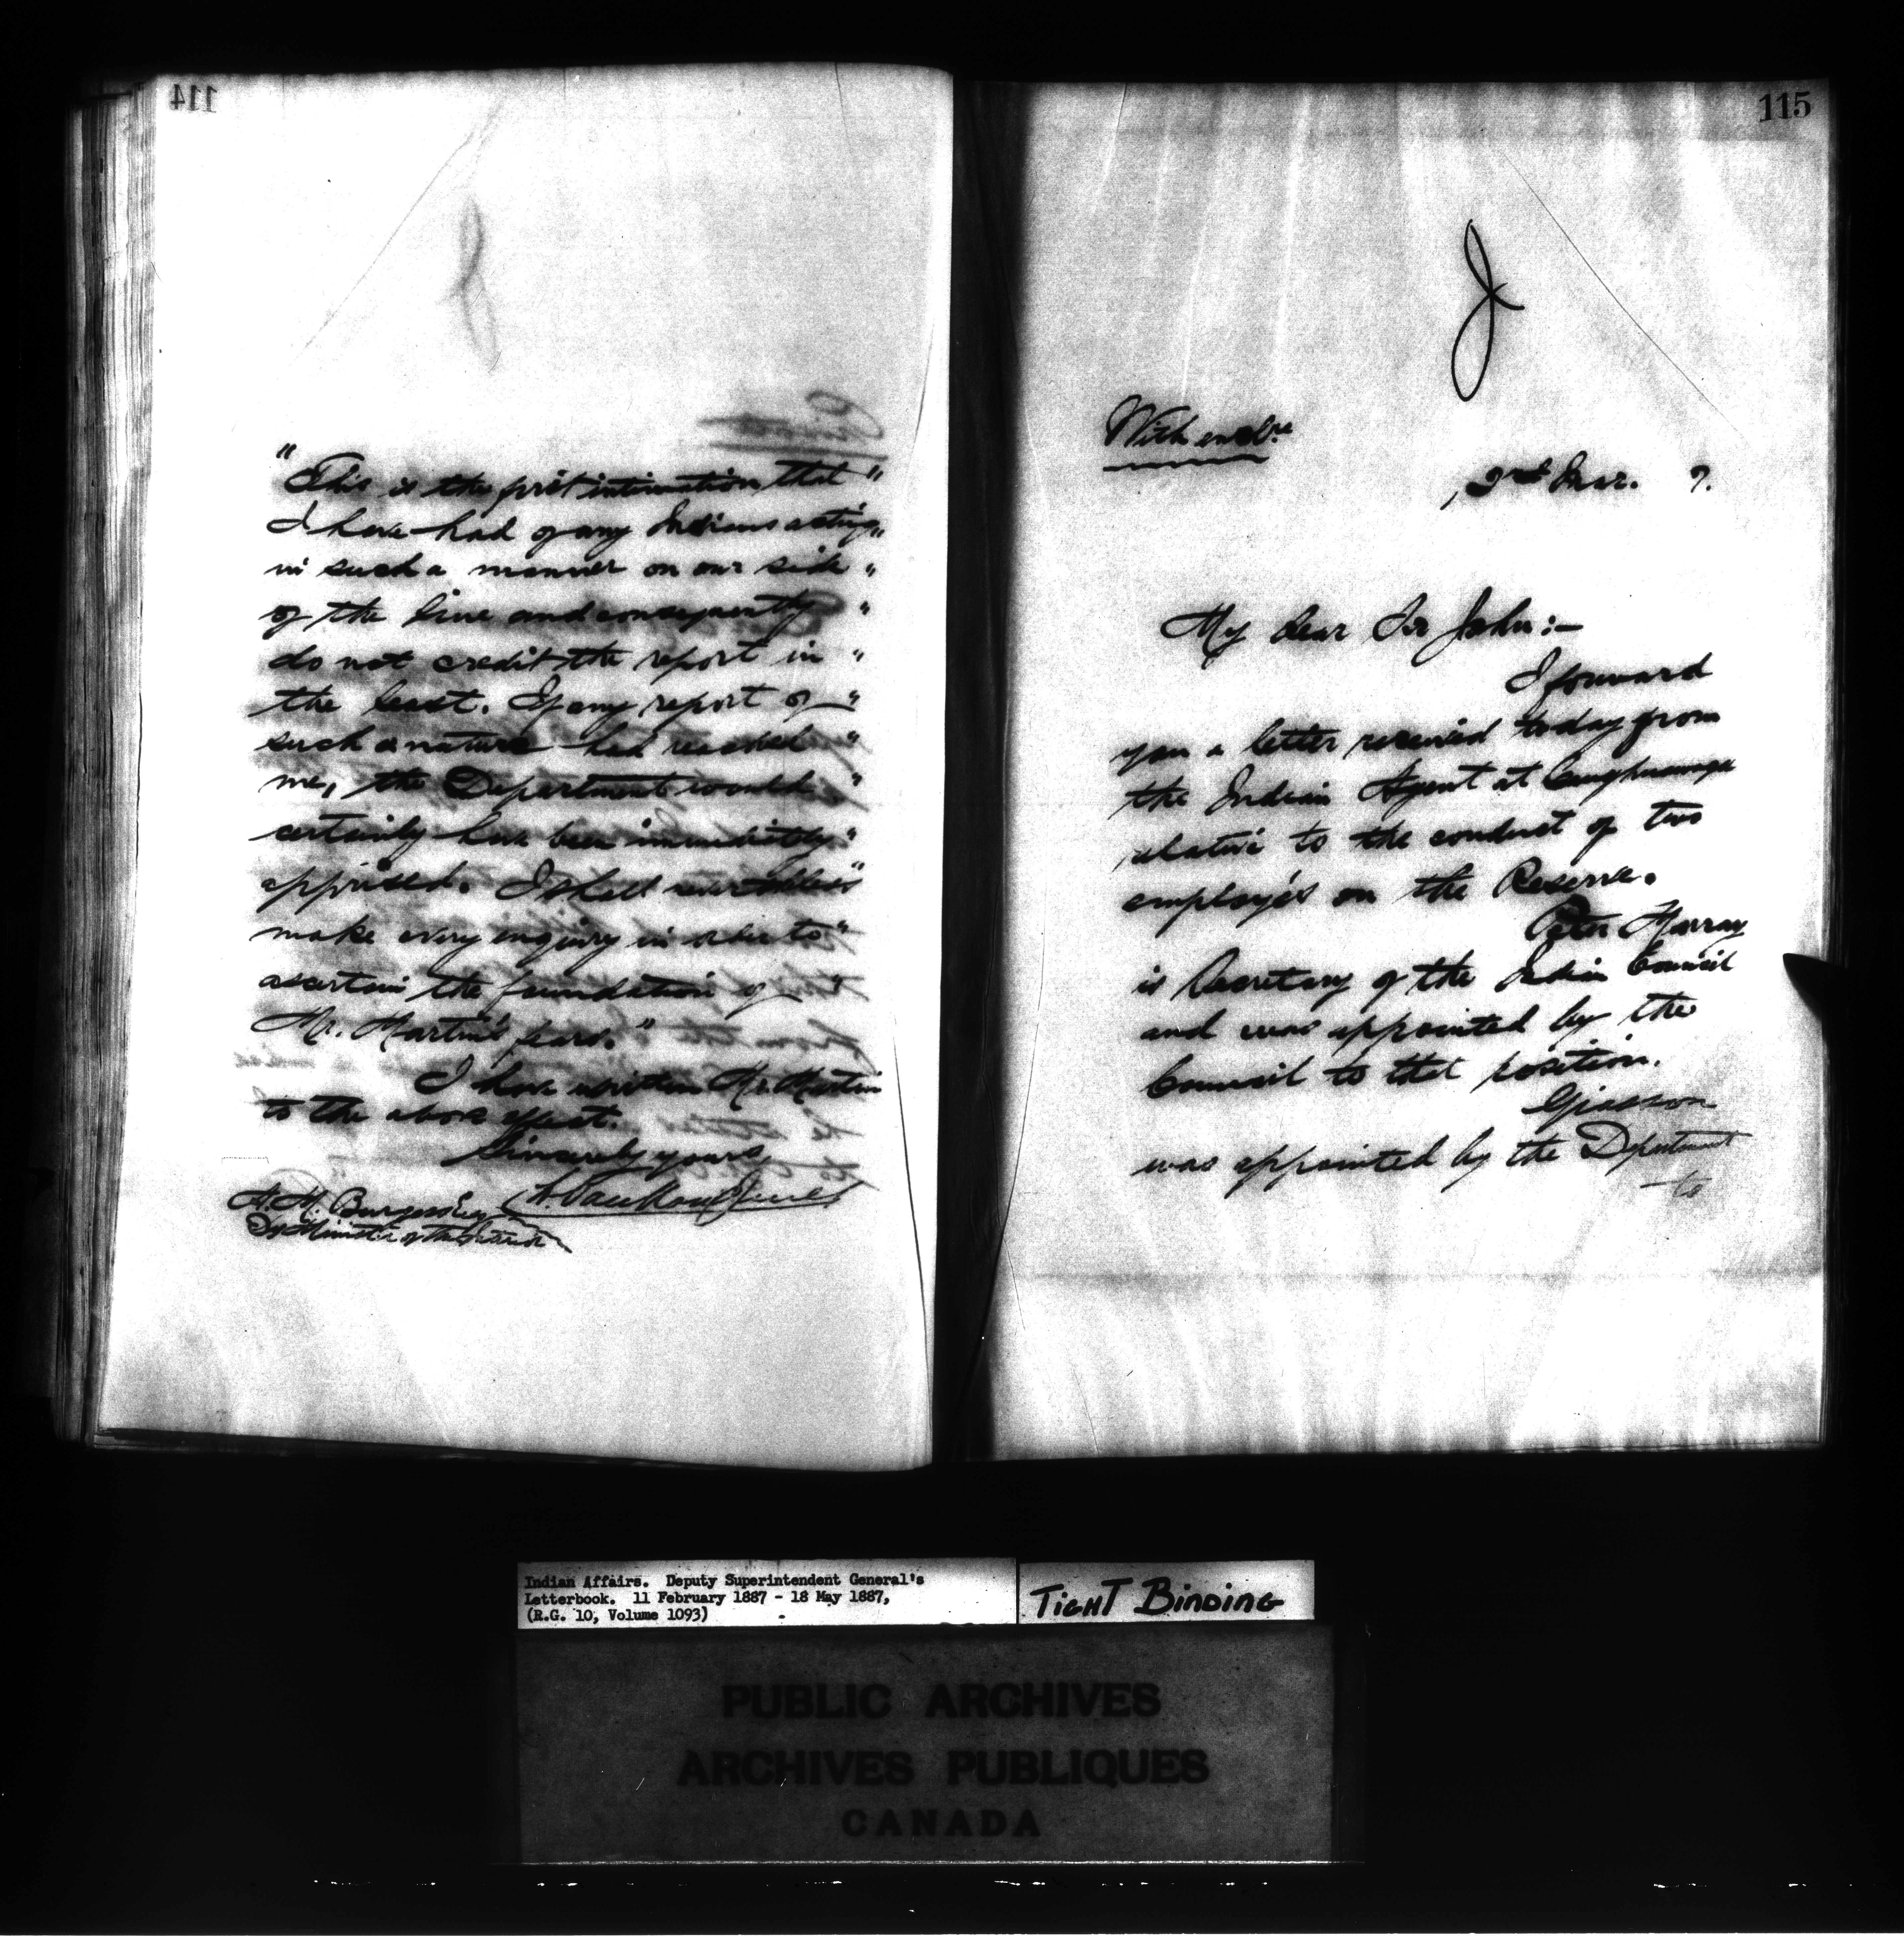 114
"This is the first intimation that "
I have had of any Indians acting "
in such a manner on our side "
of the line and consequently "
do not credit the report in "
the least. If any report of "
such a nature had reached "
me, the Department would "
certainly have been immediately "
apprised. I shall nevertheless "
make every enquiry in order to "
ascertain the foundation of "
Mr. Martin's fears."
I have written Mr. Martin
to the above effect.
Sincerely yours
A. M. Burgess Esq
Dy Minister of the Interior
115
With enclre
2nd Mar. 7.
My dear Sir John:-
I forward
you a letter received today from
the Indian Agent at Caughnawaga
relative to the conduct of two
employés on the Reserve.
Peter Murray
is Secretary of the Indian Council
and was appointed by the
Council to that position.
Giasson
was appointed by the Department
to
Indian Affairs. Deputy Superintendent General's
Letterbook. 11 February 1887 - 18 May 1887,
(R.G. 10, Volume 1093)
TIGHT BINDING
PUBLIC ARCHIVES
ARCHIVES PUBLIQUES
CANADA